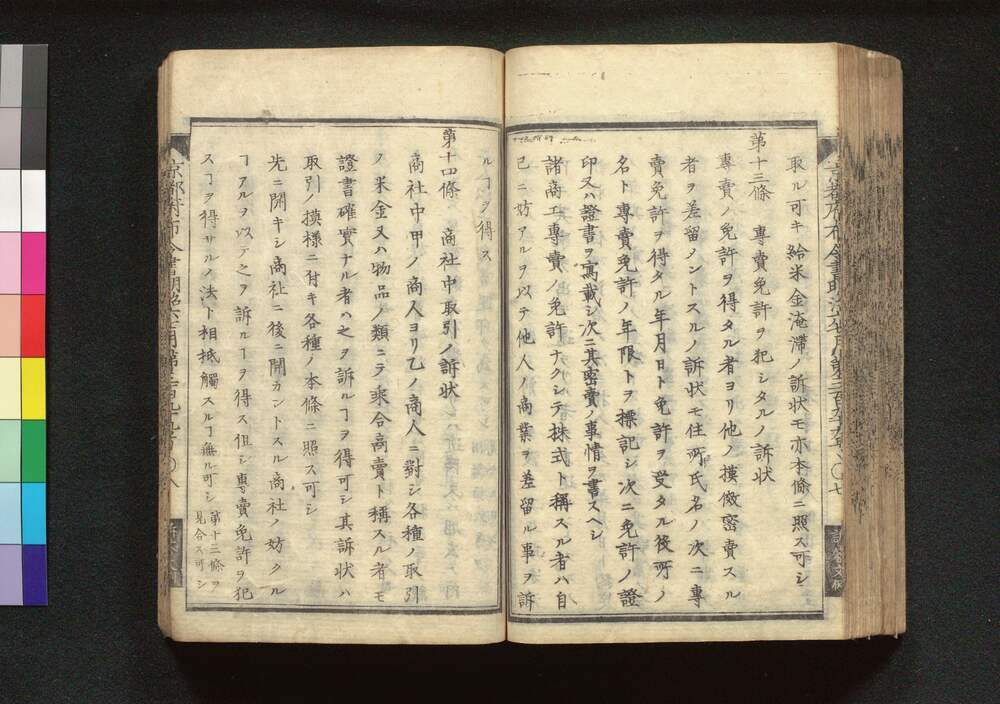 取ル可キ給米金淹滞ノ訴状モ亦本條ニ照ス可シ
第十三條 專賣免許ヲ犯シタルノ訴状
專賣ノ免許ヲ得タル者ヨリ他ノ摸倣密賣スル
者ヲ差留ノントスルノ訴状モ住所氏名ノ次ニ專
賣免許ヲ得タル年月日ト免許ヲ受タル後所ノ
名ト專賣免許ノ年限トヲ標記シ次ニ免許ノ證
印又ハ證書ヲ寫載シ次ニ其密賣ノ事情ヲ書スヘシ
諸商工專賣ノ免許ナクシテ株式ト稱スル者ハ自
己ニ妨アルヲ以テ他人ノ商業ヲ差留ル事ヲ訴
ルヿヲ得ス
第十四條 商社中取引ノ訴状
商社中甲ノ商人ヨリ乙ノ商人ニ對シ各種ノ取引
ノ米金又ハ物品ノ類ニテ乘合商賣ト稱スル者モ
證書確實ナル者ハ之ヲ訴ルヿヲ得可シ其訴状ハ
取引ノ摸様ニ付キ各種ノ本條ニ照ス可シ
先ニ開キシ商社ニ後ニ開カントスル商社ノ妨タル
ヿアルヲ以テ之ヲ訴ルヿヲ得ス但シ專賣免許ヲ犯
スヿヲ得サルノ法ト相抵觸スルヿ無ル可シ 第十三條ヲ
見合ス可シ